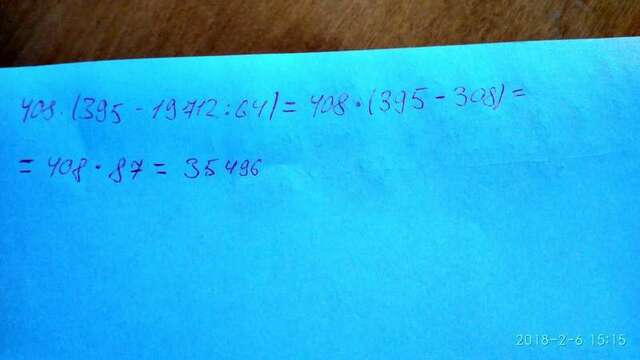 408·(395-19712:64)=408·(395-308)=
=408·87=35496
2018-2-6 15:15